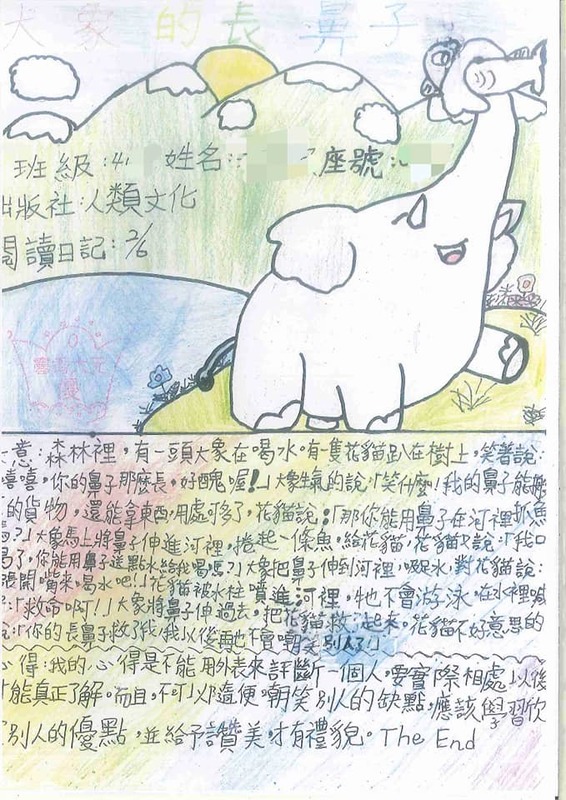 大象的長鼻子
班級:41 姓名: 座號:
出版社:人類文化
閱讀日記:2/6
意:森林裡,有一頭大象在喝水。有隻花貓趴在樹上,笑著說:
嘻嘻,你的鼻子那麼長,好醜喔!」大象生氣的說:「笑什麼!我的鼻子能
的貨物,還能拿東西,用處可多了,花貓說:「那你能用鼻子在河裡抓魚
?」大象馬上將鼻子伸進河裡,捲起一條魚,給花貓,花貓又說:「我口
渴了,你能用鼻子送點水給我喝嗎?」大象把鼻子伸到河裡,吸足水,對花貓說:
張開嘴來,喝水吧!」花貓被水柱噴進河裡,牠不會游泳,在水裡喊
:「救命啊!」大象將鼻子伸過去,把花貓救起來。花貓不好意思的
說:「你的長鼻子救了我,我以後再也不會嘲笑別人了!」
心得:我的心得是不能用外表來評斷一個人,要實際相處以後
才能真正了解。而且,不可以隨便嘲笑別人的缺點,應該學習欣
別人的優點,並給予讚美,才有禮貌。The End